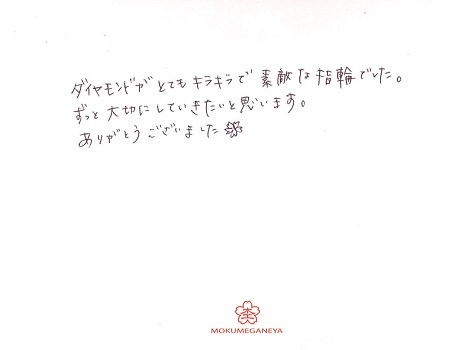 ダイヤモンドがとてもキラキラで素敵な指輪でした。
ずっと大切にしていきたいと思います。
ありがとうございました
MOKUMEGANEYA